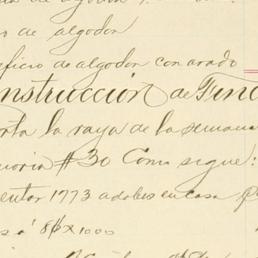 de algodon
eficio de algodon con arado
onstrucción de Finc
rta la raya de la semana
moria #30 Como sigue:
entar 1773 adobes en casa
sa á 8$ x 1000